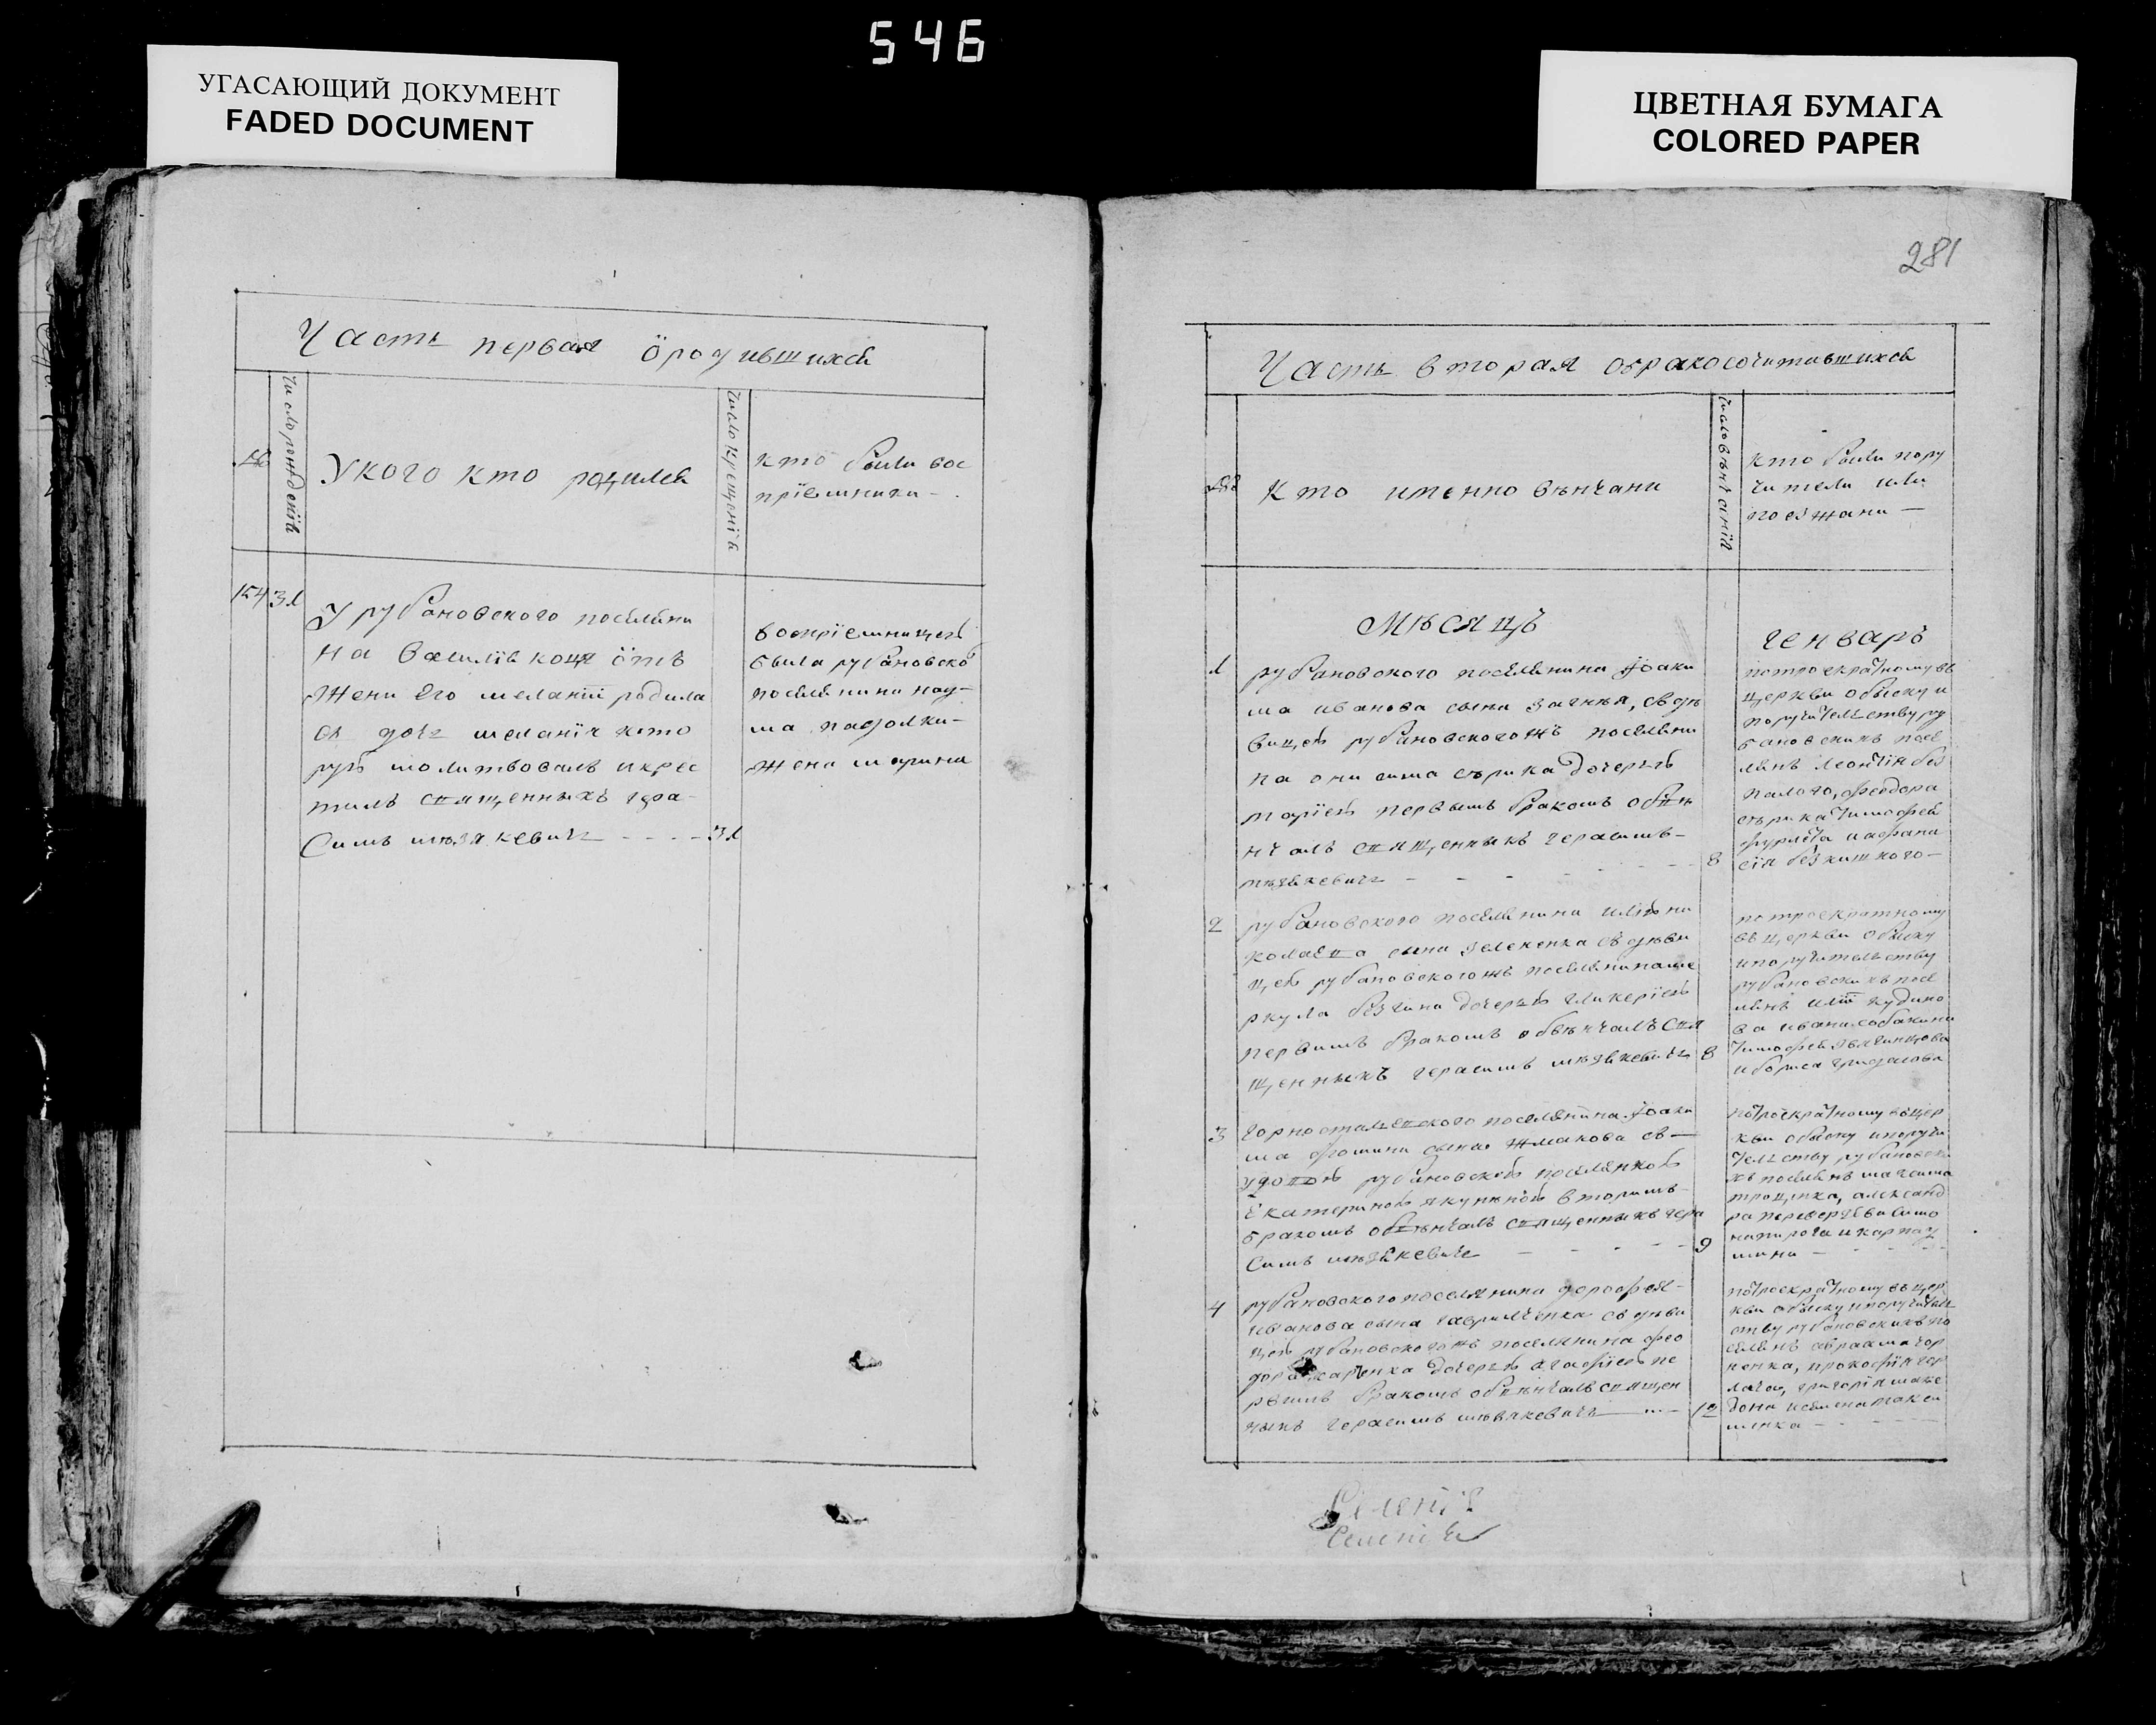 546
УГАСАЮЩИЙ ДОКУМЕНТ
FADED DOCUMENT
ЦВЕТНАЯ БУМАГА
COLORED PAPER
Часть первая ӧродившихся
№
Число рождения
У кого кто родился
Число крещенія
кто были вос
пріемники -
154 31
У рубановского поселяни
на Василія коця ӧтъ
жены его меланіи родила
ся дочь меланія кото
рую молитвовалъ и крес
тилъ священникъ гера-
симъ мизякевичъ - - - - 31
воспріемницею
была рубановско
поселянина нау-
ма падолки-
жена марина
281
Часть вторая обракосочитавшихся
№
Кто именно вѣнчани
Число вѣнчанія
кто были пору
чители или
поезжани —
Мѣсяцъ
генварь
1
рубановского поселянина Іоаки
ма иванова сына , съ дѣ
вицею рубановскогожъ поселяни
на онисима сѣрика дочерью
маріею первымъ бракомъ обвѣ
нчалъ священникъ герасимъ-
мизякевичъ - - - - - - - 8
по троекратному въ
церкви обыску и
поручительству ру
бановскихъ посе
лянъ леонтія без
палого, феодора
сѣрика тимофея
и афана
сія —
2
рубановского поселянина иліи ни
колаева сына зеленка съ дѣви
цею рубановскогожъ поселянина ме
ркула дочерью гликеріею
первимъ бракомъ обвѣнчалъ свя
щенникъ герасимъ мизякевичъ 8
по троекратному
въ церкви обыску
и поручительству
рубановскихъ посе
лянъ иліи кудино
ва ивана собакина
тимофея
и бориса
3
горностаевского поселянина Іоаки
ма фомина сына жмакова съ —
удовою рубановскою поселянкою
Екатериною вторимъ
бракомъ обвѣнчалъ священникъ гера
симъ мизякевичъ - - - - 9
по троекратному въ цер
кви обыску и поручи
тельству рубановски
хъ поселянъ максима
троценка, александ
ра симо
на пирога и карпа
4
рубановского поселянина дорофея-
иванова сына гавриленка съ дѣви
цею рубановскогожъ поселянина фео
дора дочерью агафіею пе
рвимъ бракомъ обвѣнчалъ священ
никъ герасимъ мизякевичъ - 12
по троекратному въ цер
кви обыску и поручитель
ству рубановскихъ по
селянъ авраама гор
ненка, прокофія гор
лача, григорія маке
дона и